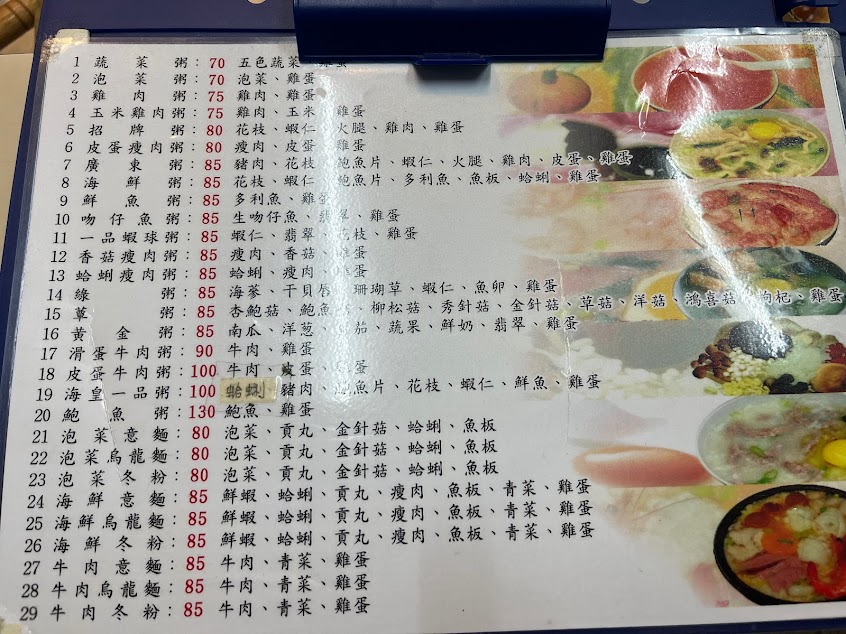 1 蔬菜粥：70 五色蔬菜、雞蛋
2 泡菜粥：70 泡菜、雞蛋
3 雞肉粥：75 雞肉、雞蛋
4 玉米雞肉粥：75 雞肉、玉米、雞蛋
5 招牌粥：80 花枝、蝦仁、火腿、雞肉、雞蛋
6 皮蛋瘦肉粥：80 瘦肉、皮蛋、雞蛋
7 廣東粥：85 豬肉、花枝、鮑魚片、蝦仁、火腿、雞肉、皮蛋、雞蛋
8 海鮮粥：85 花枝、蝦仁、鮑魚片、多利魚、魚板、蛤蜊、雞蛋
9 鮮魚粥：85 多利魚、雞蛋
10 吻仔魚粥：85 生吻仔魚、翡翠、雞蛋
11 一品蝦球粥：85 蝦仁、翡翠、花枝、雞蛋
12 香菇瘦肉粥：85 瘦肉、香菇、雞蛋
13 蛤蜊瘦肉粥：85 蛤蜊、瘦肉、雞蛋
14 綠粥：85 海蔘、干貝唇、珊瑚草、蝦仁、魚卵、雞蛋
15 蕈粥：85 杏鮑菇、鮑魚菇、柳松菇、秀針菇、金針菇、草菇、洋菇、鴻喜菇、枸杞、雞蛋
16 黃金粥：85 南瓜、洋蔥、茄、蔬果、鮮奶、翡翠、雞蛋
17 滑蛋牛肉粥：90 牛肉、雞蛋
18 皮蛋牛肉粥：100 牛肉、皮蛋、雞蛋
19 海皇一品粥：100 蛤蜊、豬肉、鮑魚片、花枝、蝦仁、鮮魚、雞蛋
20 鮑魚粥：130 鮑魚、雞蛋
21 泡菜意麵：80 泡菜、貢丸、金針菇、蛤蜊、魚板
22 泡菜烏龍麵：80 泡菜、貢丸、金針菇、蛤蜊、魚板
23 泡菜冬粉：80 泡菜、貢丸、金針菇、蛤蜊、魚板
24 海鮮意麵：85 鮮蝦、蛤蜊、貢丸、瘦肉、魚板、青菜、雞蛋
25 海鮮烏龍麵：85 鮮蝦、蛤蜊、貢丸、瘦肉、魚板、青菜、雞蛋
26 海鮮冬粉：85 鮮蝦、蛤蜊、貢丸、瘦肉、魚板、青菜、雞蛋
27 牛肉意麵：85 牛肉、青菜、雞蛋
28 牛肉烏龍麵：85 牛肉、青菜、雞蛋
29 牛肉冬粉：85 牛肉、青菜、雞蛋